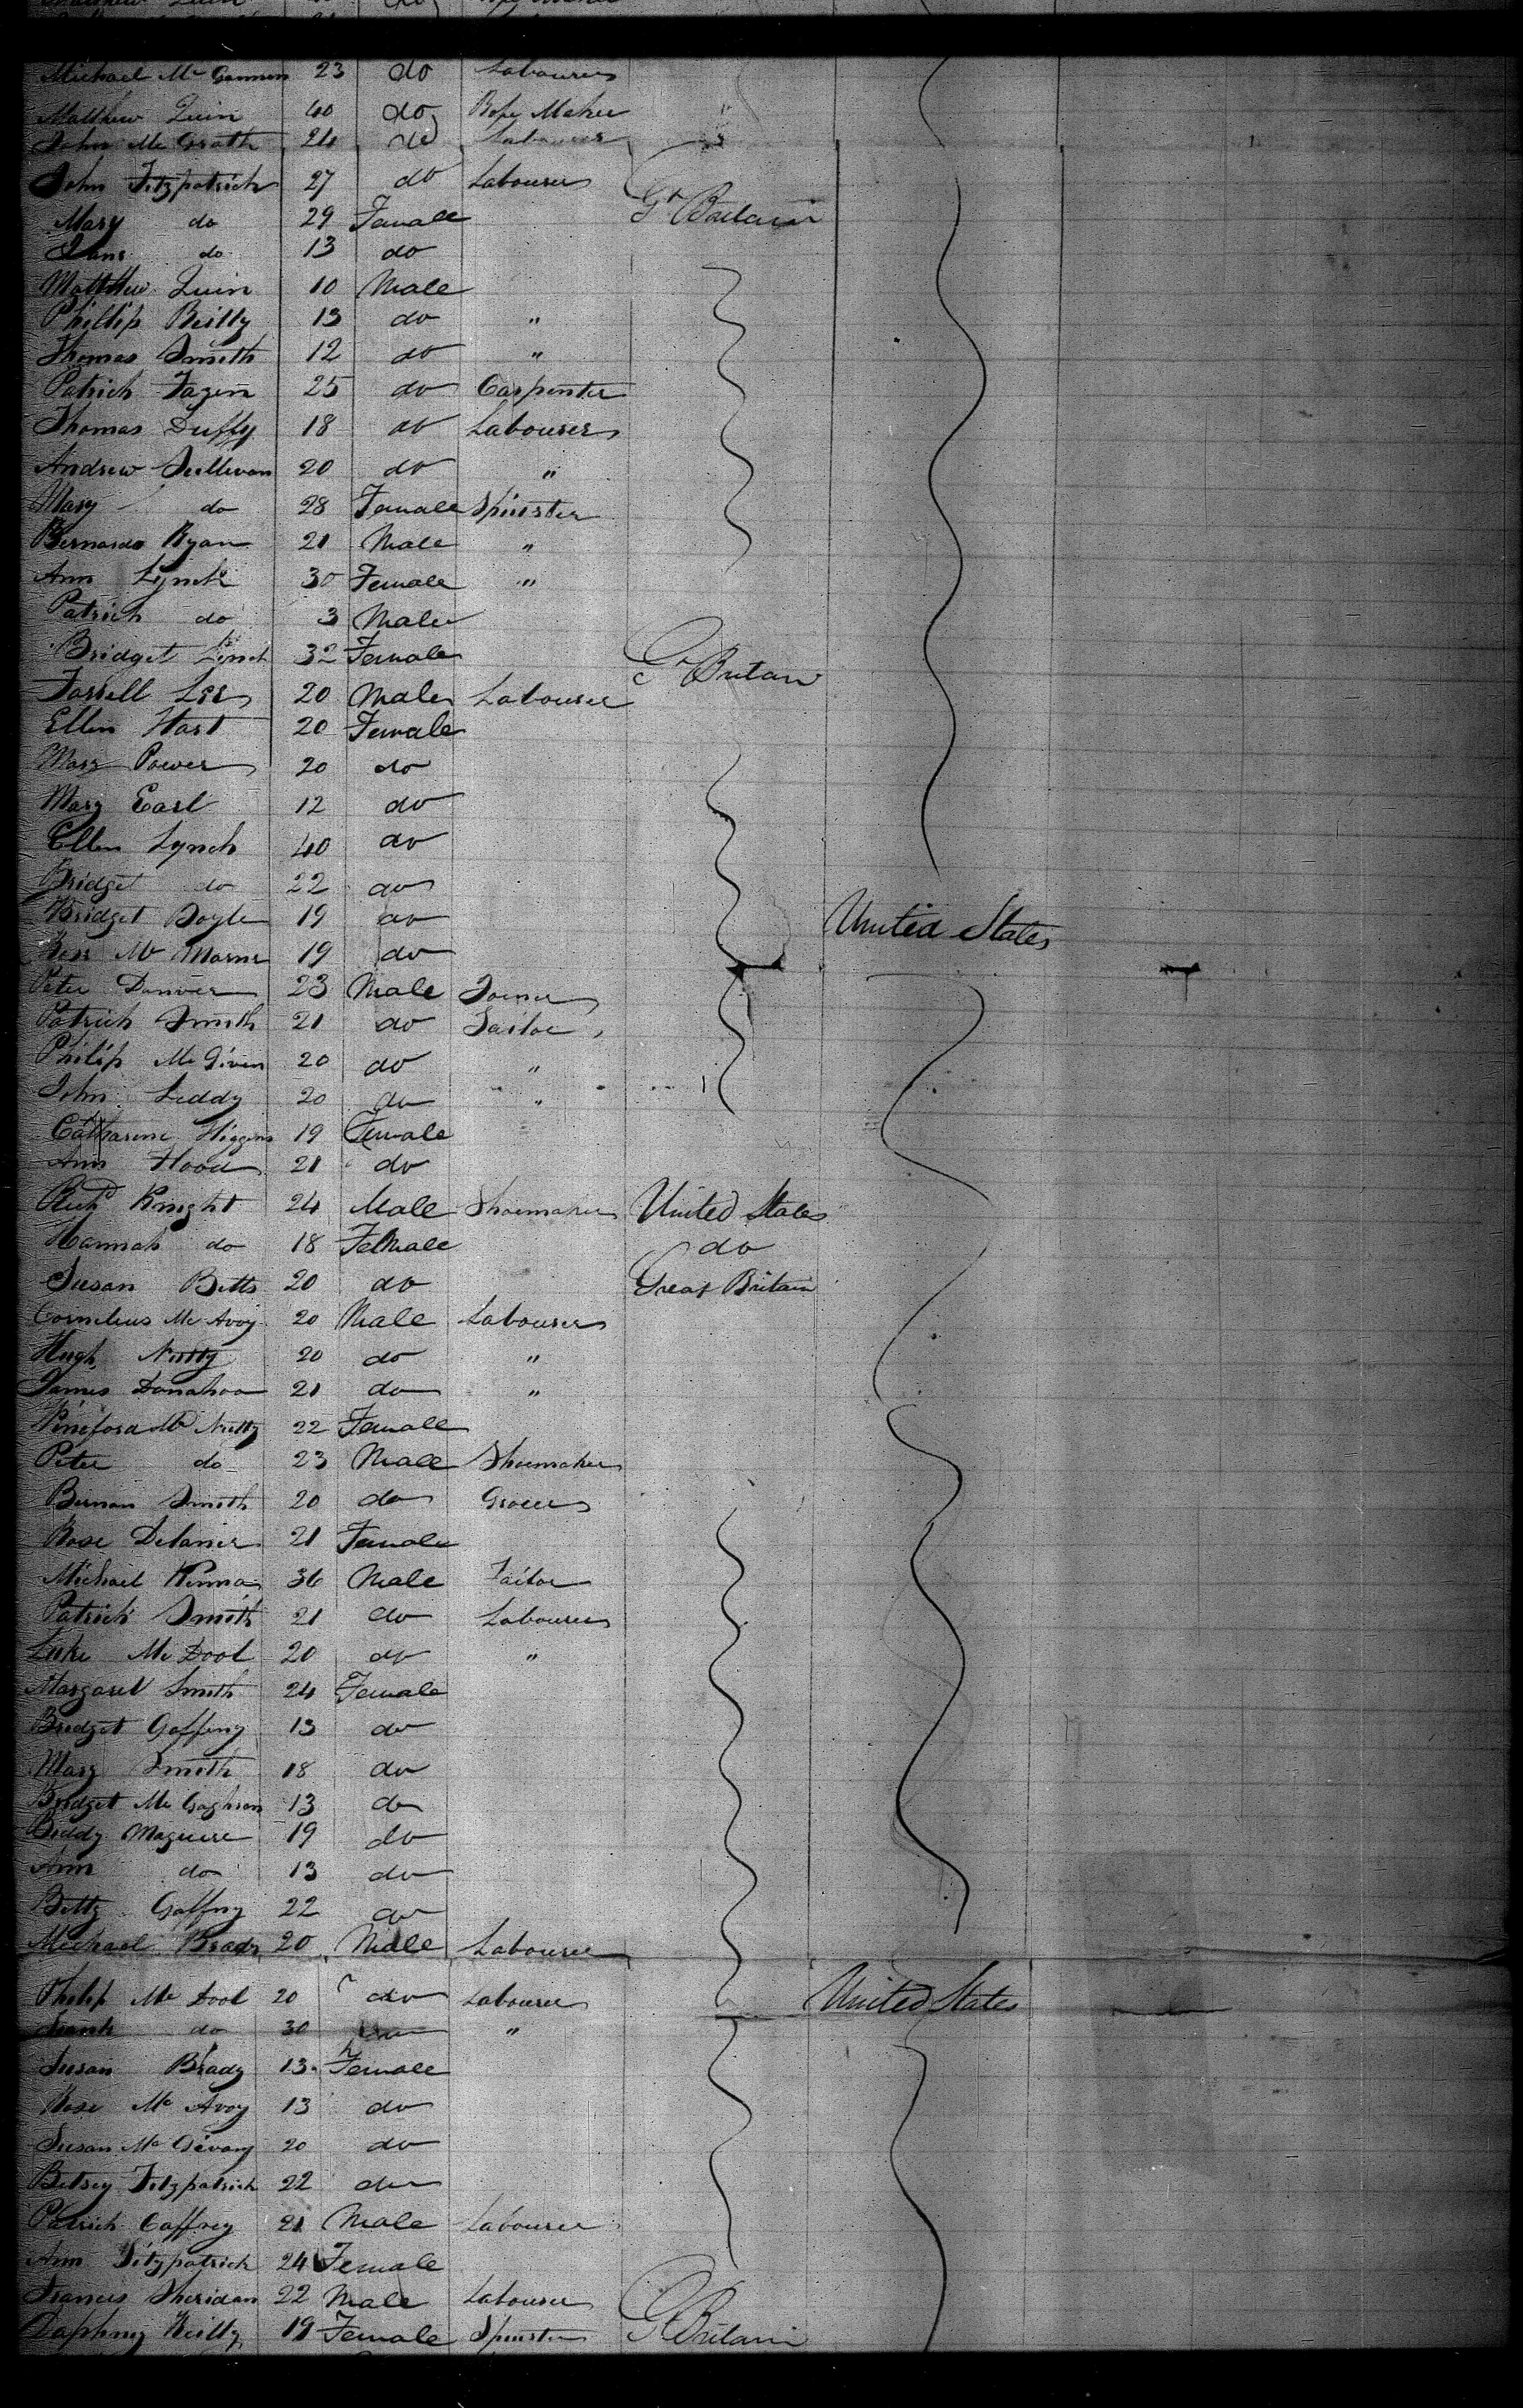 Michael Mc Gannon 23 do Labourer
Matthew Quin 40 do Rope Maker
John Mc Grath 24 do Labourer
John Fitzpatrick 27 do Labourer
Mary do 29 Female Gt Britain
Jane do 13 do
Matthew Quin 10 Male
Phillip Reilly 13 do "
Thomas Smith 12 do "
Patrick Fagen 25 do Carpenter
Thomas Duffy 18 do Labourer
Andrew Sullivan 20 do "
Mary do 28 Female Spinster
Bernard Ryan 21 Male "
Ann Lynch 30 Female "
Patrick do 3 Male
Bridget Lynch 32 Female Gt Britain
Farrell Lee 20 Male Labourer
Ellen Hart 20 Female
Mary Power 20 do
Mary Earl 12 do
Ellen Lynch 40 do
Bridget do 22 do
Bridget Doyle 19 do United States
Mc 19 do
Peter 23 Male Joiner
Patrick Smith 21 do Tailor
Philip Mc Given 20 do "
John Leddy 20 do "
Catharine Higgins 19 Female
Ann Hood 21 do
Richd Knight 24 Male Shoemaker United States
Hannah do 18 Female do
Susan Betts 20 do Great Britain
Cornelius Mc Avoy 20 Male Labourer
Hugh Nutty 20 do "
James Donahoo 21 do "
Mc Nutty 22 Female
Peter do 23 Male Shoemaker
Smith 20 do Grocer
Rose 21 Female
Michael 36 Male Tailor
Patrick Smith 21 do Labourer
Luke Mc Dool 20 do "
Margaret Smith 24 Female
Bridget Gaffeny 13 do
Mary Smith 18 do
Bridget Mc 13 do
Biddy Maguere 19 do
Ann do 13 do
Betty Gaffny 22 do
Michael Brady 20 Male Labourer
Philip Mc Dool 20 do Labourer United States
do 30 "
Susan Brady 13 Female
Rose Mc Avoy 13 do
Susan Mc 20 do
Betsey Fitzpatrick 22 do
Patrick Caffrey 21 Male Labourer
Ann Fitzpatrick 24 Female
Francis Sheridan 22 Male Labourer
Daphny Reilly 19 Female Spinster Gt Britain